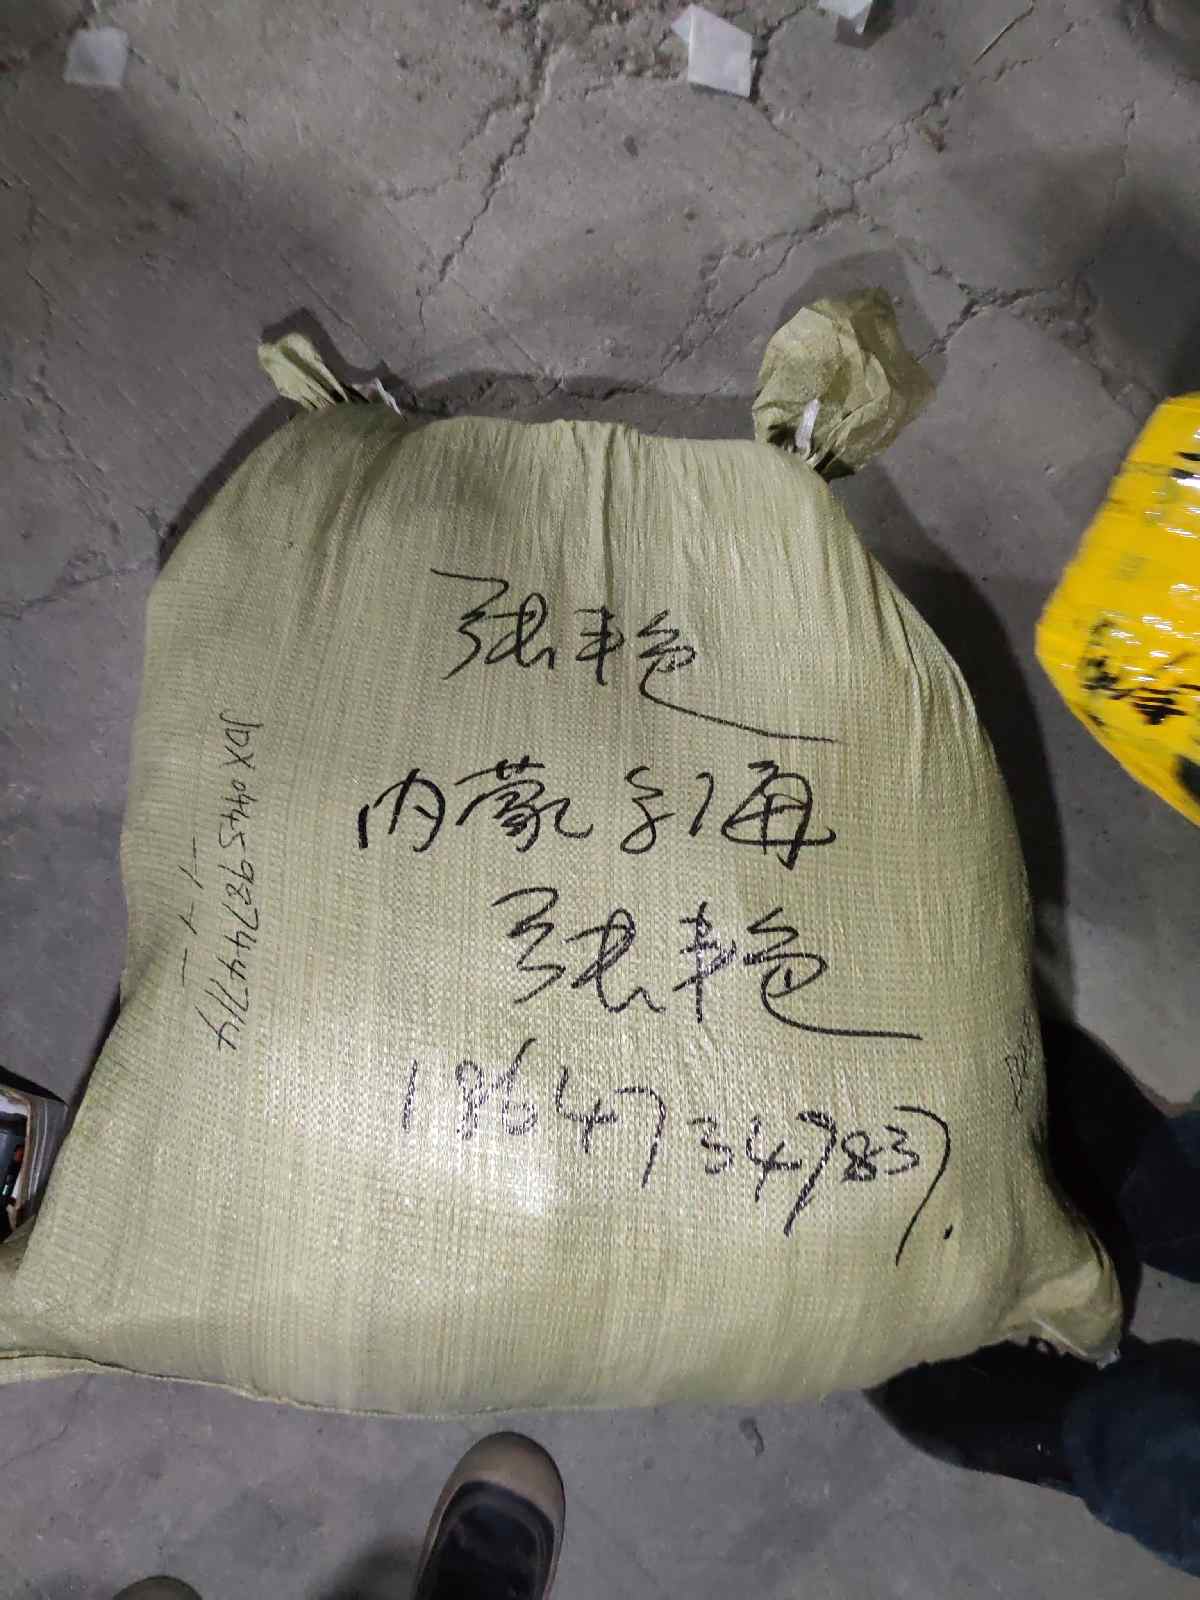 张艳
内蒙乌海
张艳
18647347837.
JDX044598744714
1-1-1